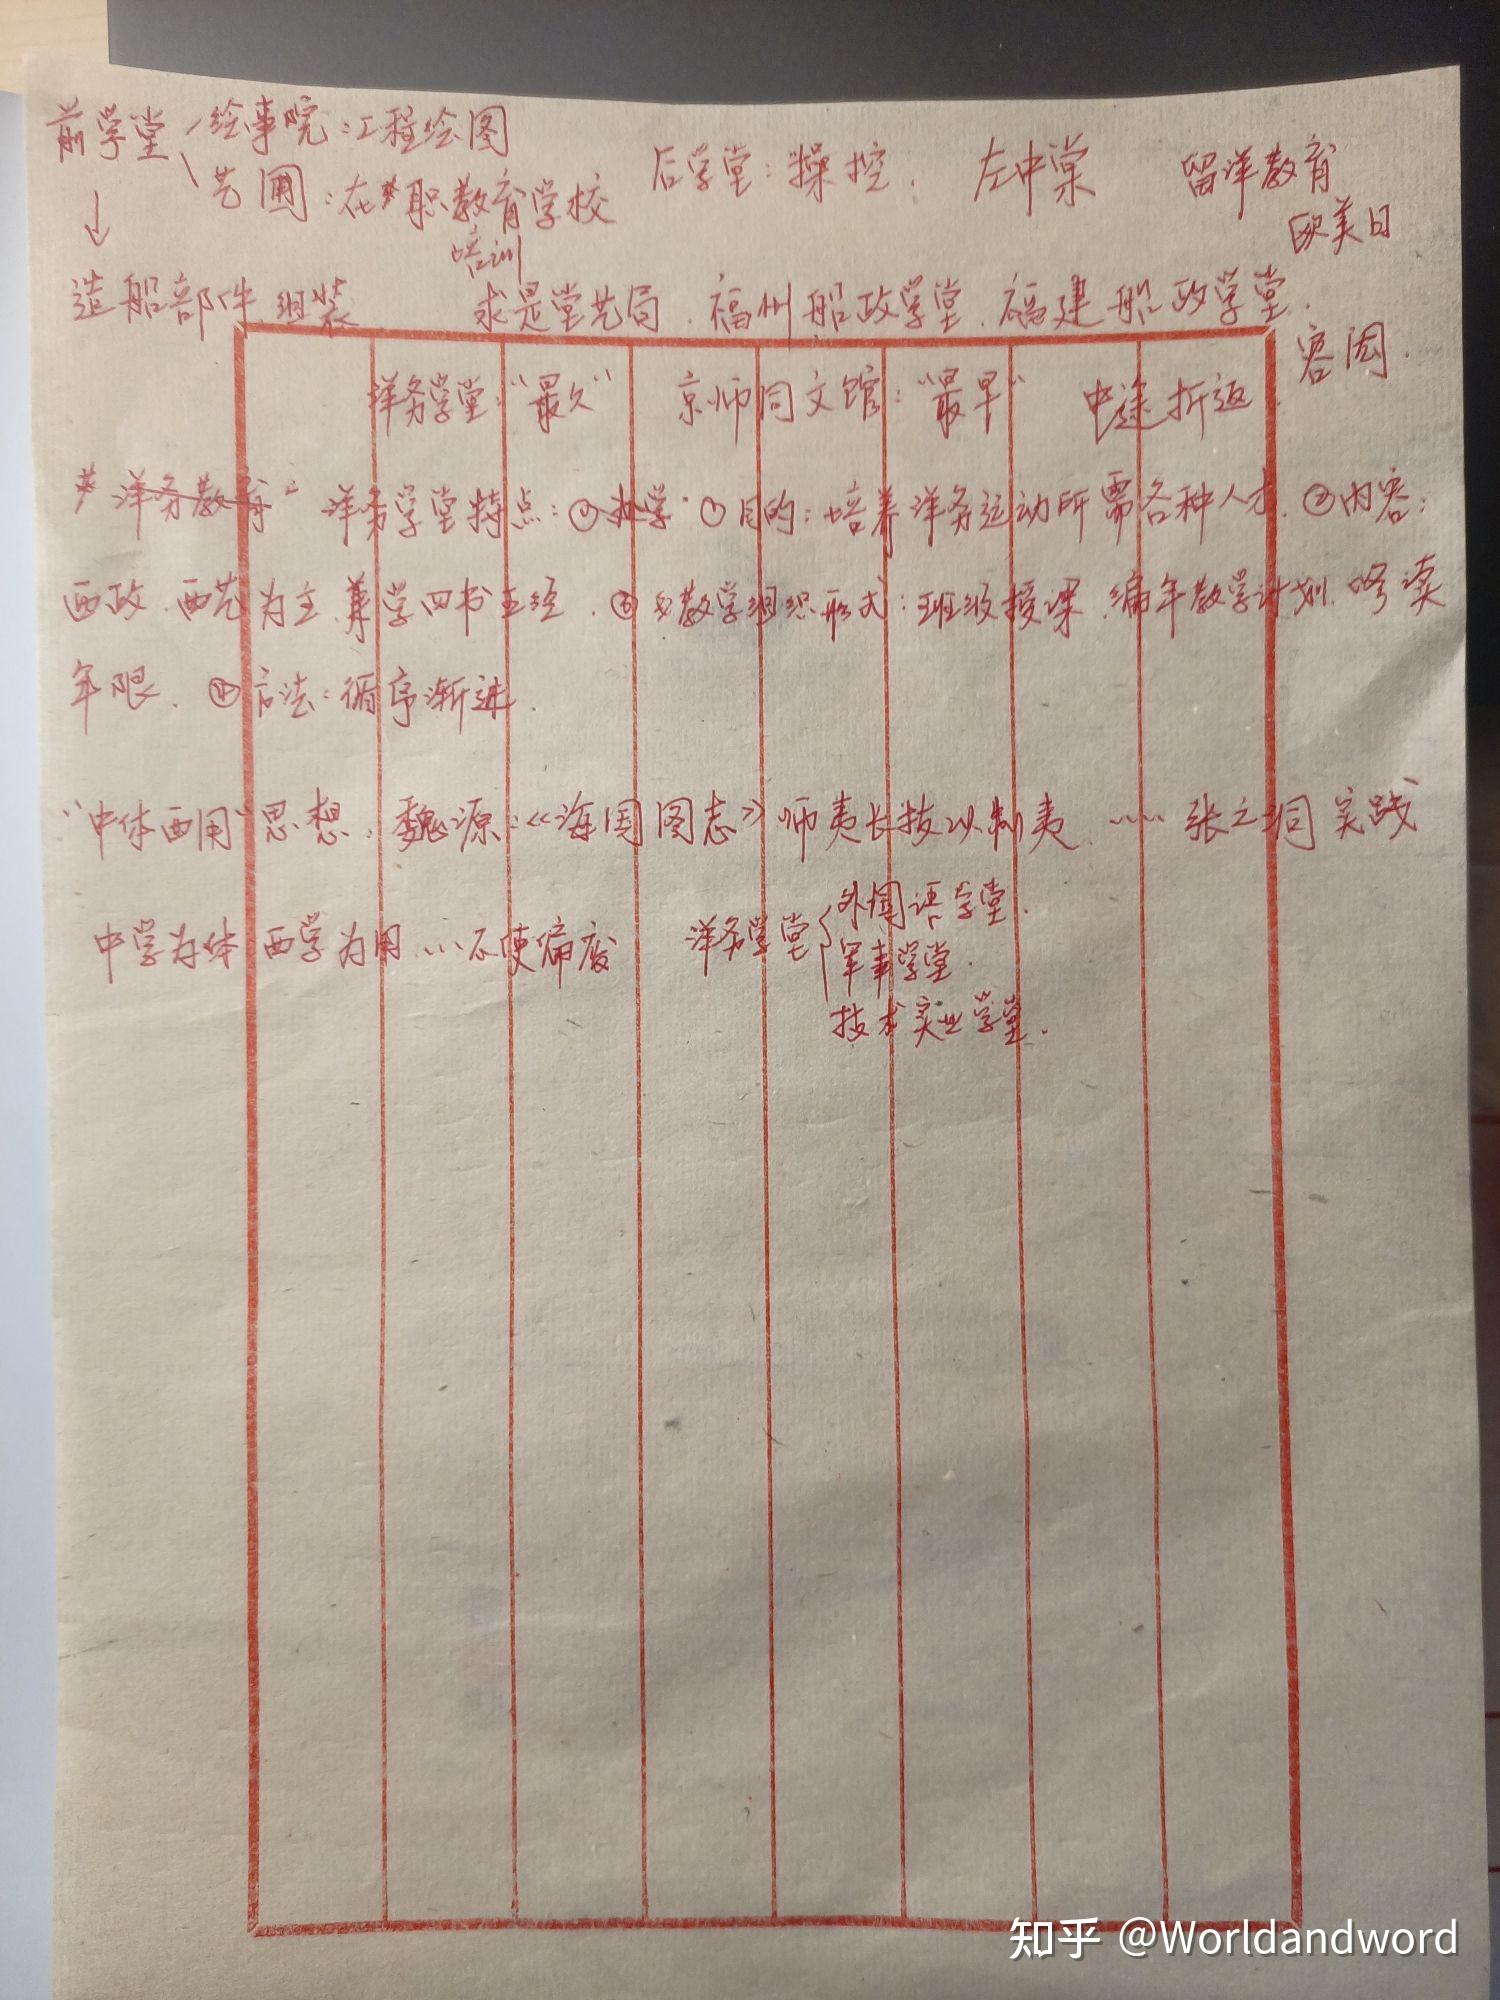 前学堂 绘事院:工程绘图
艺圃:在职教育学校 后学堂:操控. 左中棠 留洋教育
培训 欧美日
造船部件组装 求是堂艺局、福州船政学堂、福建船政学堂.
容闳.
洋务学堂:“最久” 京师同文馆:“最早” 中途折返.
“洋务教育” 洋务学堂特点:①办学 ①目的:培养洋务运动所需各种人才. ②内容:
西政、西艺为主,兼学四书五经. ③教学组织形式:班级授课、编年教学计划、修读
年限. ④方法:循序渐进.
“中体西用”思想:魏源:《海国图志》师夷长技以制夷. …… 张之洞 实践
中学为体 西学为用…不使偏废 洋务学堂 外国语学堂.
军事学堂.
技术实业学堂.
知乎 @Worldandword